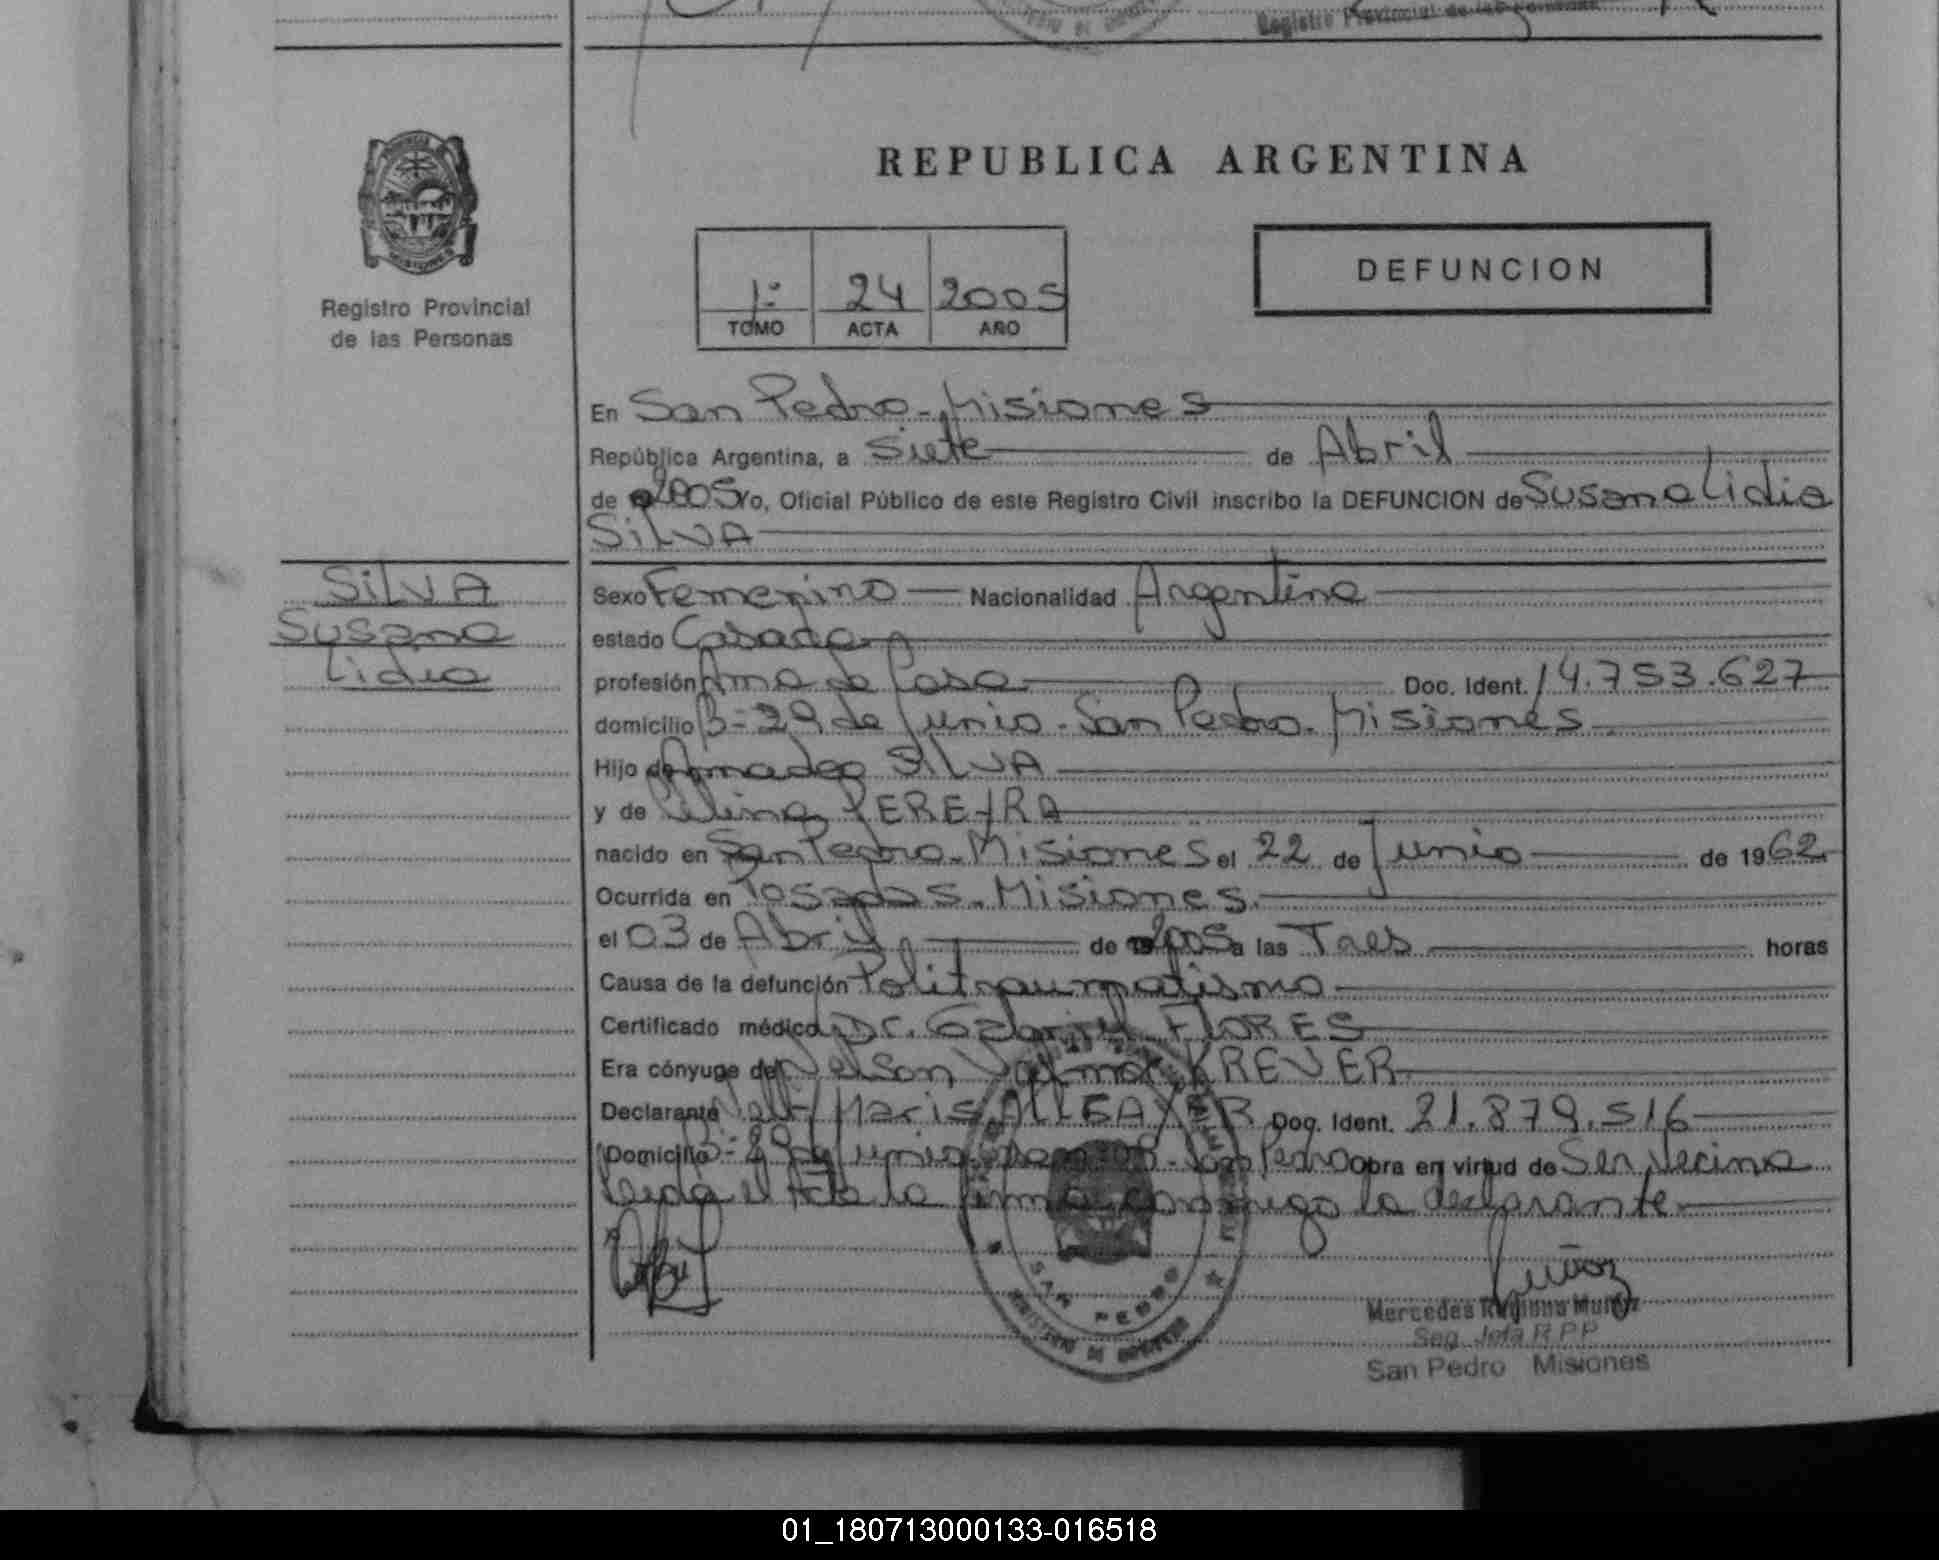 Registro Provincial de las Personas
REPUBLICA ARGENTINA
Registro Provincial
de las Personas
1º 24 2005
TOMO ACTA AÑO
DEFUNCION
En San Pedro - Misiones
República Argentina, a Siete de Abril
de 2005 Yo, Oficial Público de este Registro Civil inscribo la DEFUNCION de Susana Lidia
SILVA
SILVA
Susana
Lidia
Sexo Femenino Nacionalidad Argentina
estado Casada
profesión Ama de Casa Doc. Ident. 14.753.627
domicilio Bº 29 de Junio - San Pedro - Misiones
Hijo de Amadeo SILVA
y de PEREYRA
nacido en San Pedro - Misiones el 22 de Junio de 1962
Ocurrida en Posadas - Misiones.
el 03 de Abril de 2005 a las Tres horas
Causa de la defunción Politraumatismo
Certificado médico Dr. Gabriel FLORES
Era cónyuge de Nelson KREVER
Declarante Maris ALLGAYER Doc. Ident. 21.879.516
Domicilio Bº 29 de Junio San Pedro obra en virtud de Ser Vecina
Leida el Acta la firma conmigo la declarante
Muñoz
Mercedes Regina Muñoz
Seg. Jefa R.P.P
San Pedro Misiones
SAN PEDRO
MINISTERIO DE GOBIERNO
01_180713000133-016518